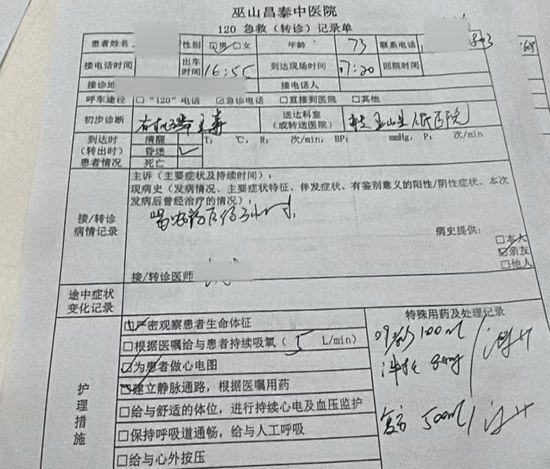 巫山昌泰中医院
120 急救（转诊）记录单
患者姓名 性别 ☑男/□女 年龄 73 联系电话
接电话时间 出车时间 16:55 到达现场时间 17:20 回院时间
接诊地 接电话人
呼车途径 □“120”电话 ☑急诊电话 □直接到医院 □其他
初步诊断 有机磷中毒 送达科室（或转送医院） 转巫山县人民医院
到达时（转出时）患者情况 清醒 昏迷 ✓ 死亡 T: ℃, R: 次/min, BP: mmHg, P: 次/min
主诉（主要症状及持续时间）：
现病史（发病情况、主要症状特征、伴发症状、有鉴别意义的阳性/阴性症状、本次
发病后曾经治疗的情况）：
接/转诊病情记录
病史提供：
□本人
☑亲友
□他人
接/转诊医师
途中症状变化记录
护理措施 特殊用药及处理记录
☑严密观察患者生命体征
□根据医嘱给与患者持续吸氧（ 5 L/min）
☑为患者做心电图
☑建立静脉通路，根据医嘱用药
□给与舒适的体位，进行持续心电及血压监护
□保持呼吸道通畅，给与人工呼吸
□给与心外按压
100ml
500ml